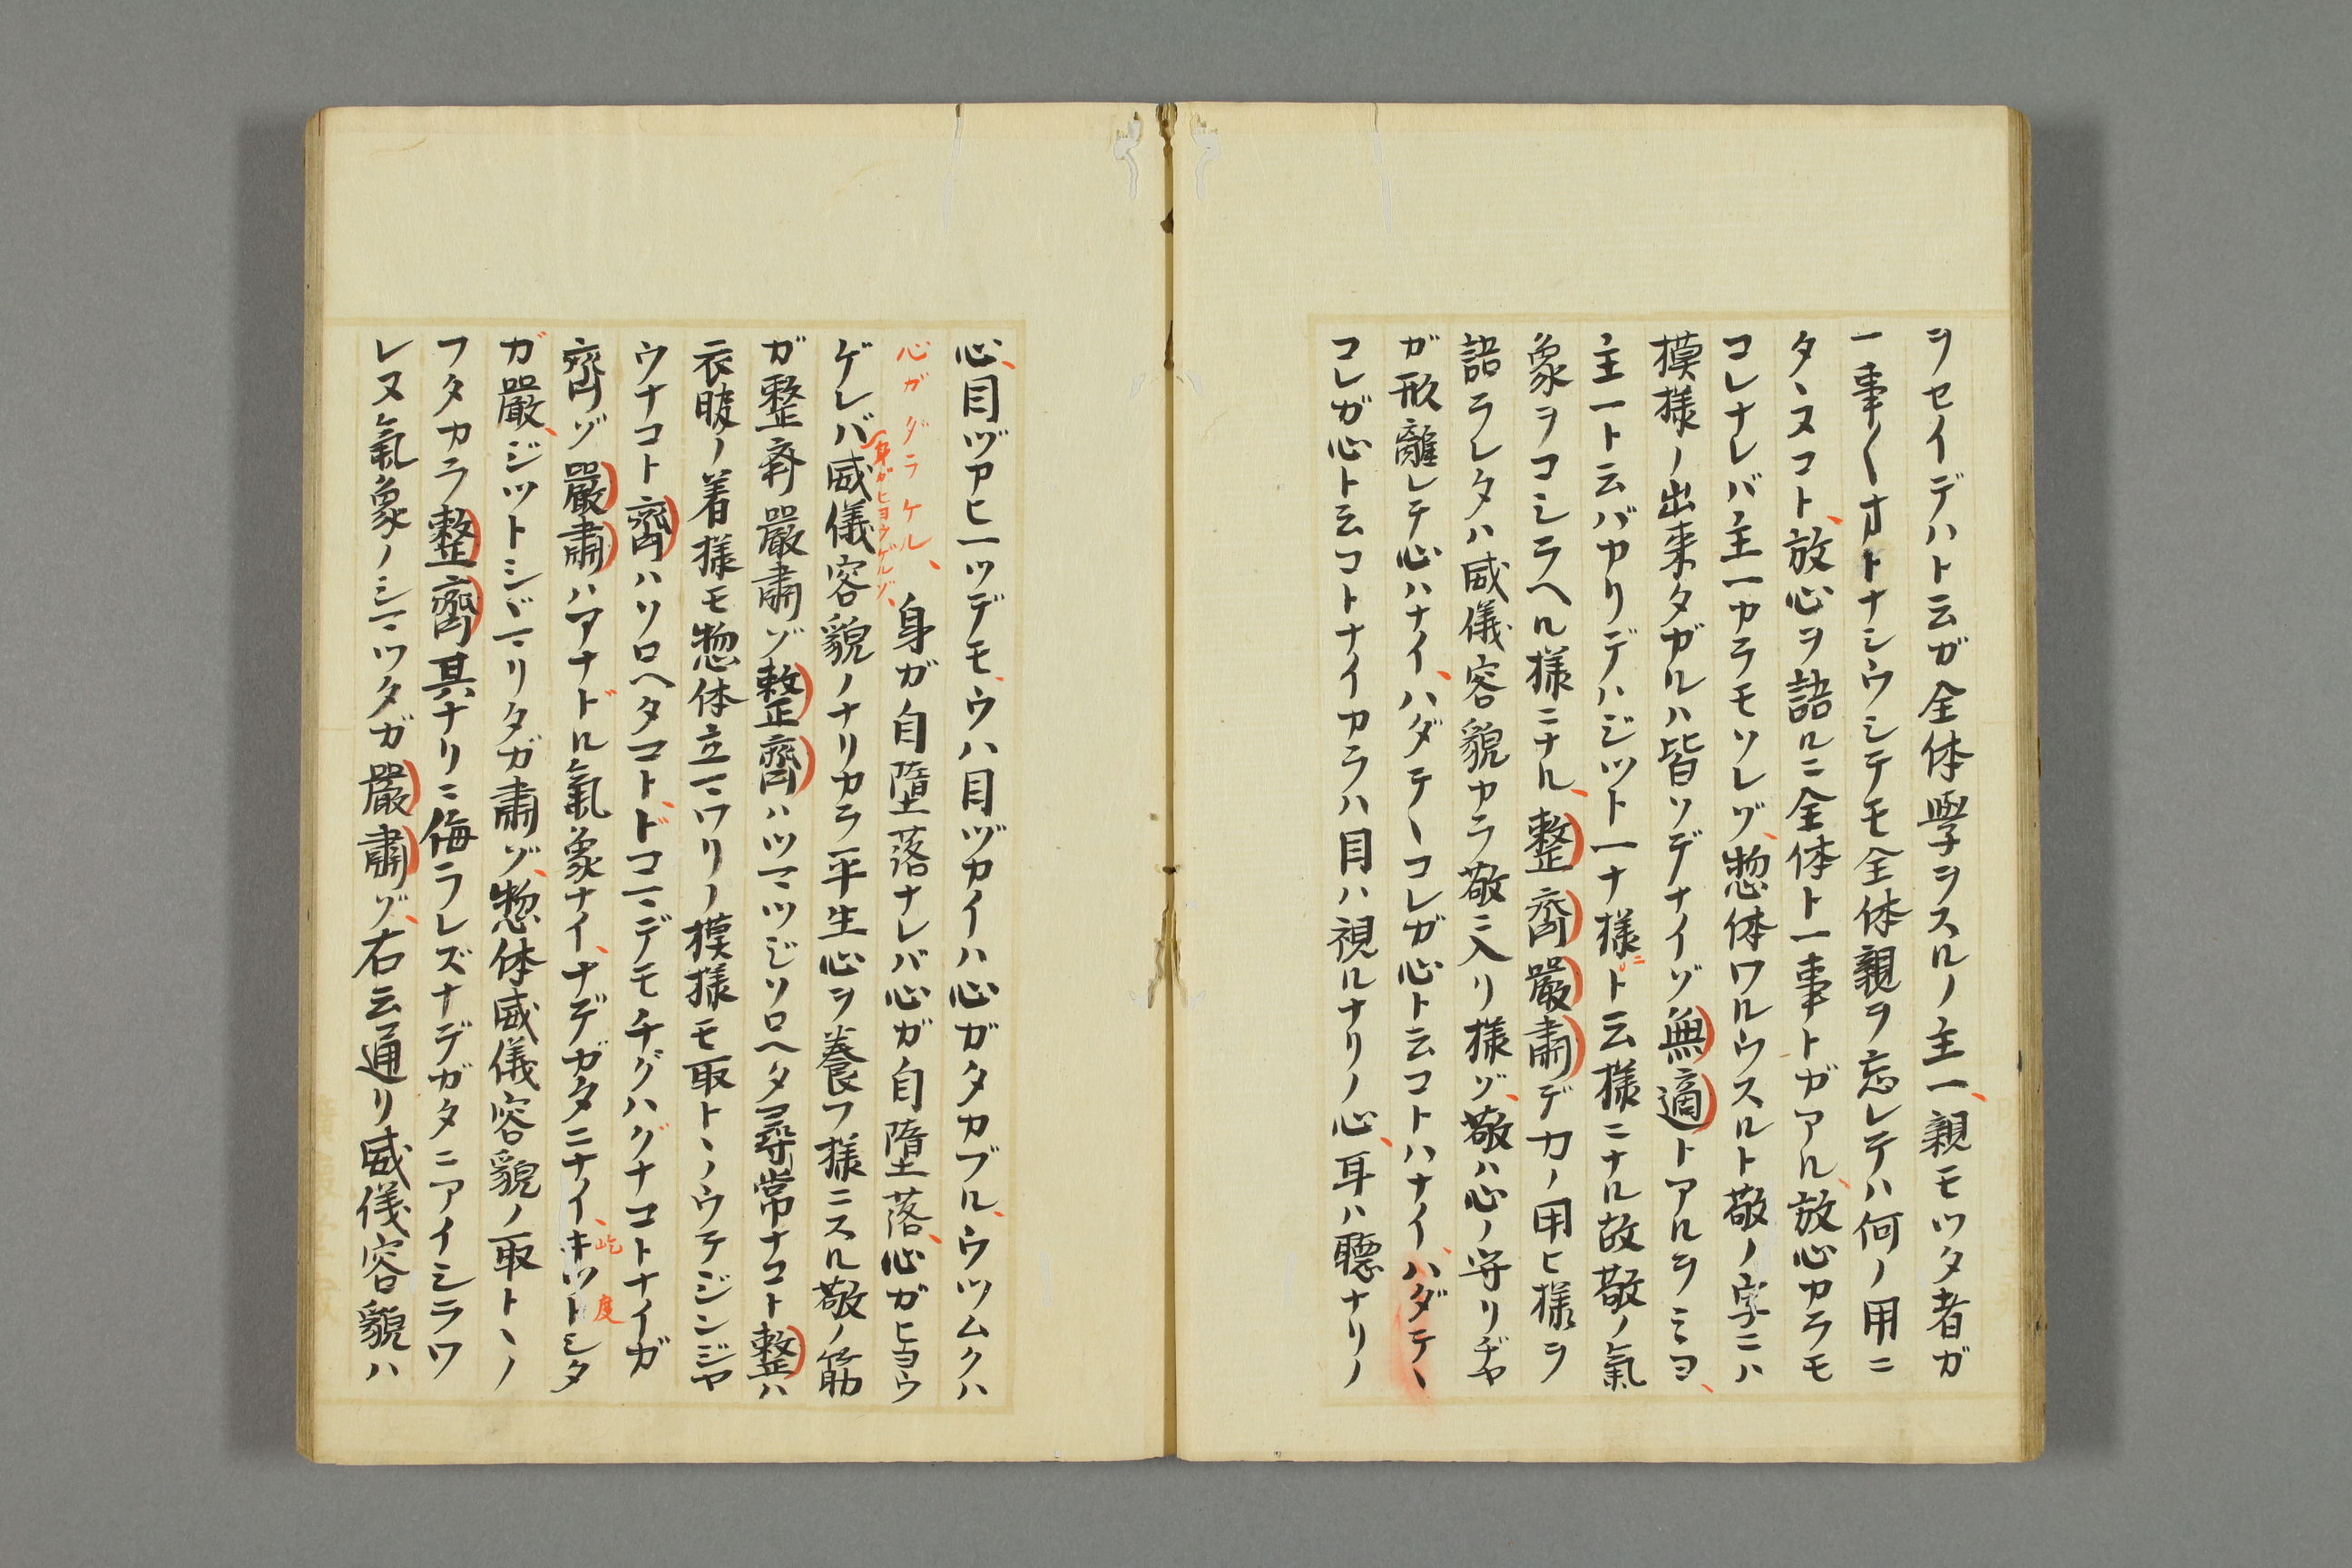 ヲセイデハト云ガ全体學ヲスルノ主一、親モツタ者ガ
一事〱オトナシウシテモ全体親ヲ忘レテハ何ノ用ニ
タヽヌコト、放心ヲ語ルニ全体ト一事トガアル、放心カラモ
コレナレバ主一カラモソレゾ、惣体ワルウスルト敬ノ字ニハ
摸樣ノ出来タガルハ皆ソデナイゾ無適トアルヲミヨ、
主一ト云バカリデハジツト一ナ様ニト云様ニナル故敬ノ氣
象ヲコシラヘル様ニナル、整齊嚴肅デ力ノ用ヒ様ヲ
語ラレタハ威儀容貌カラ敬ニ入リ様ゾ、敬ハ心ノ守リヂヤ
ガ形離レテ心ハナイ、ハダテヽコレガ心ト云コトハナイ、ハダテヽ
コレガ心ト云コトナイカラハ目ハ視ルナリノ心、耳ハ聽ナリノ
心、目ヅカヒ一ツデモ、ウハ目ヅカイハ心ガタカブル、ウツムクハ
心ガダラケル、身ガ自墮落ナレバ心ガ自墮落、心ガヒヨウ
ゲレバ身ガヒヨウゲルゾ、威儀容貌ノナリカラ平生心ヲ養フ様ニスル敬ノ筋
ガ整齊嚴肅ゾ整齊ハツマヽツジソロヘタ尋常ナコト整ハ
衣服ノ着様モ惣体立マワリノ摸樣モ取トヽノウテジンジヤ
ウナコト齊ハソロヘタコト、ドコマデモチグハグナコトナイガ
齊ゾ嚴肅ハアナドル氣象ナイ、ナデガタニナイ、キツト屹度シタ
ガ嚴、ジツトシヾマリタガ肅ゾ、惣体威儀容貌ノ取トヽノ
フタカラ整齊其ナリニ侮ラレズナデガタニアイシラワ
レヌ氣象ノシマツタガ嚴肅ゾ、右云通リ威儀容貌ハ